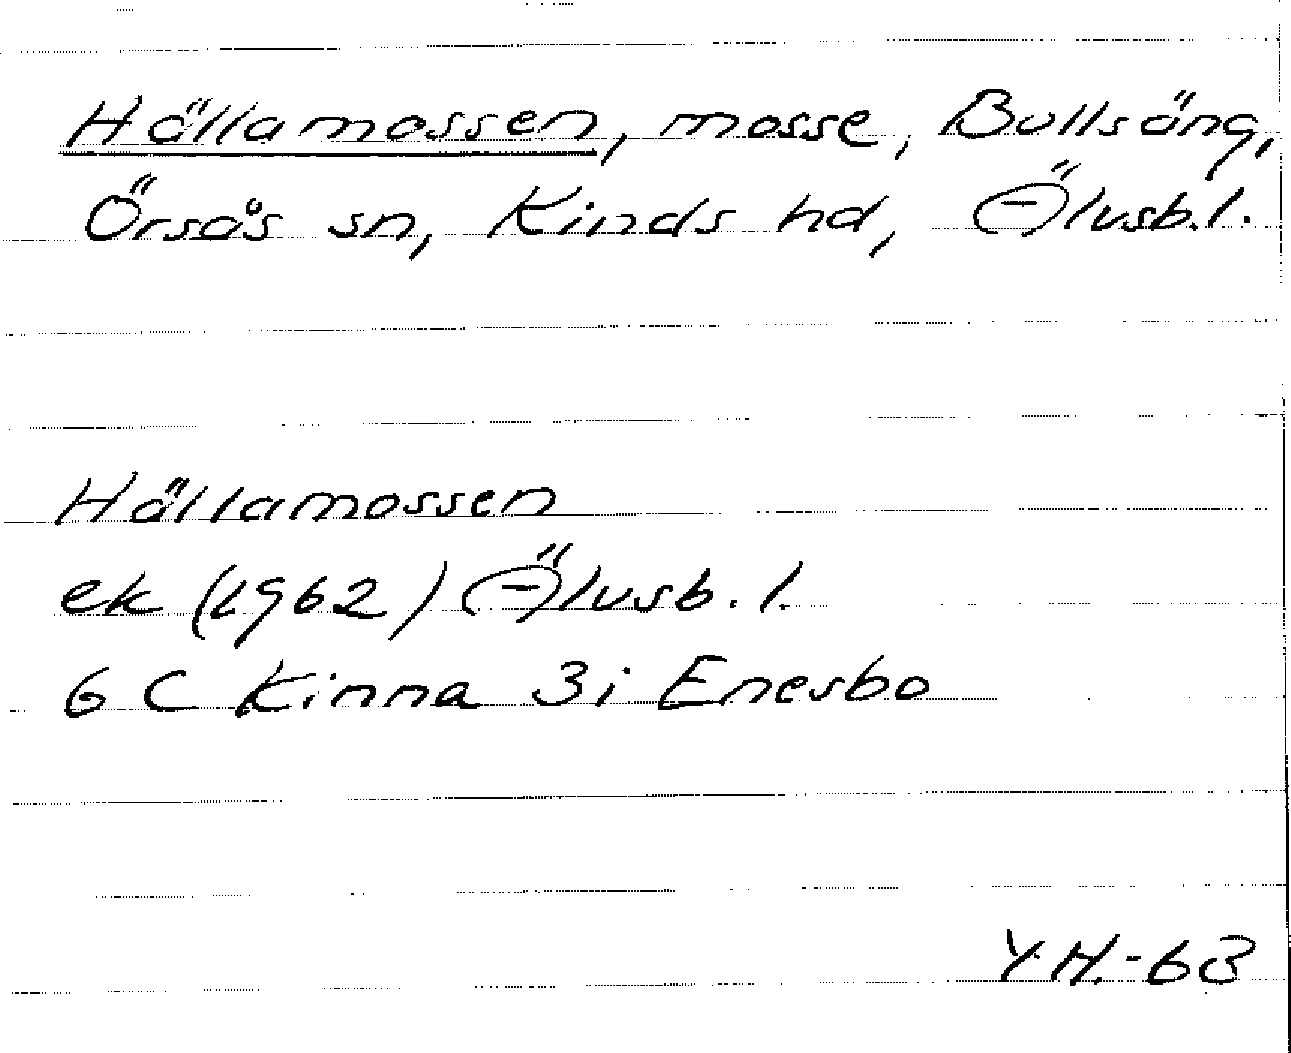 Hällamossen, mosse, Bullsäng,
Örsås sn, Kinds hd, Älvsb.l.
Hällamossen
ek (1962) Älvsb.l.
6 C Kinna 3i Enesbo
Y.H.-63